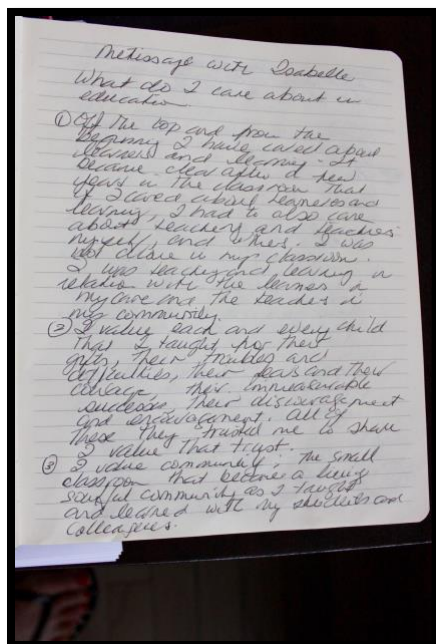 Metissage with Isabelle
What do I care about in
education
① Off the top and from the
beginning I have cared about
learners and learning. It
became clear after a few
years in the classroom that
if I cared about learners and
learning, I had to also care
about teachers and teaching
myself, and others. I was
not alone in my classroom.
I was teaching and learning in
relation with the learners in
my care and the teachers in
my community.
② I value each and every child
that I taught for their
gifts, their troubles and
difficulties, their fears and their
courage, their immeasurable
successes, their discouragement
and encouragement. All of
these they trusted me to share
I value that trust.
③ I value community, the small
classroom that became a living
soulful community as I taught
and learned with my students and
colleagues.